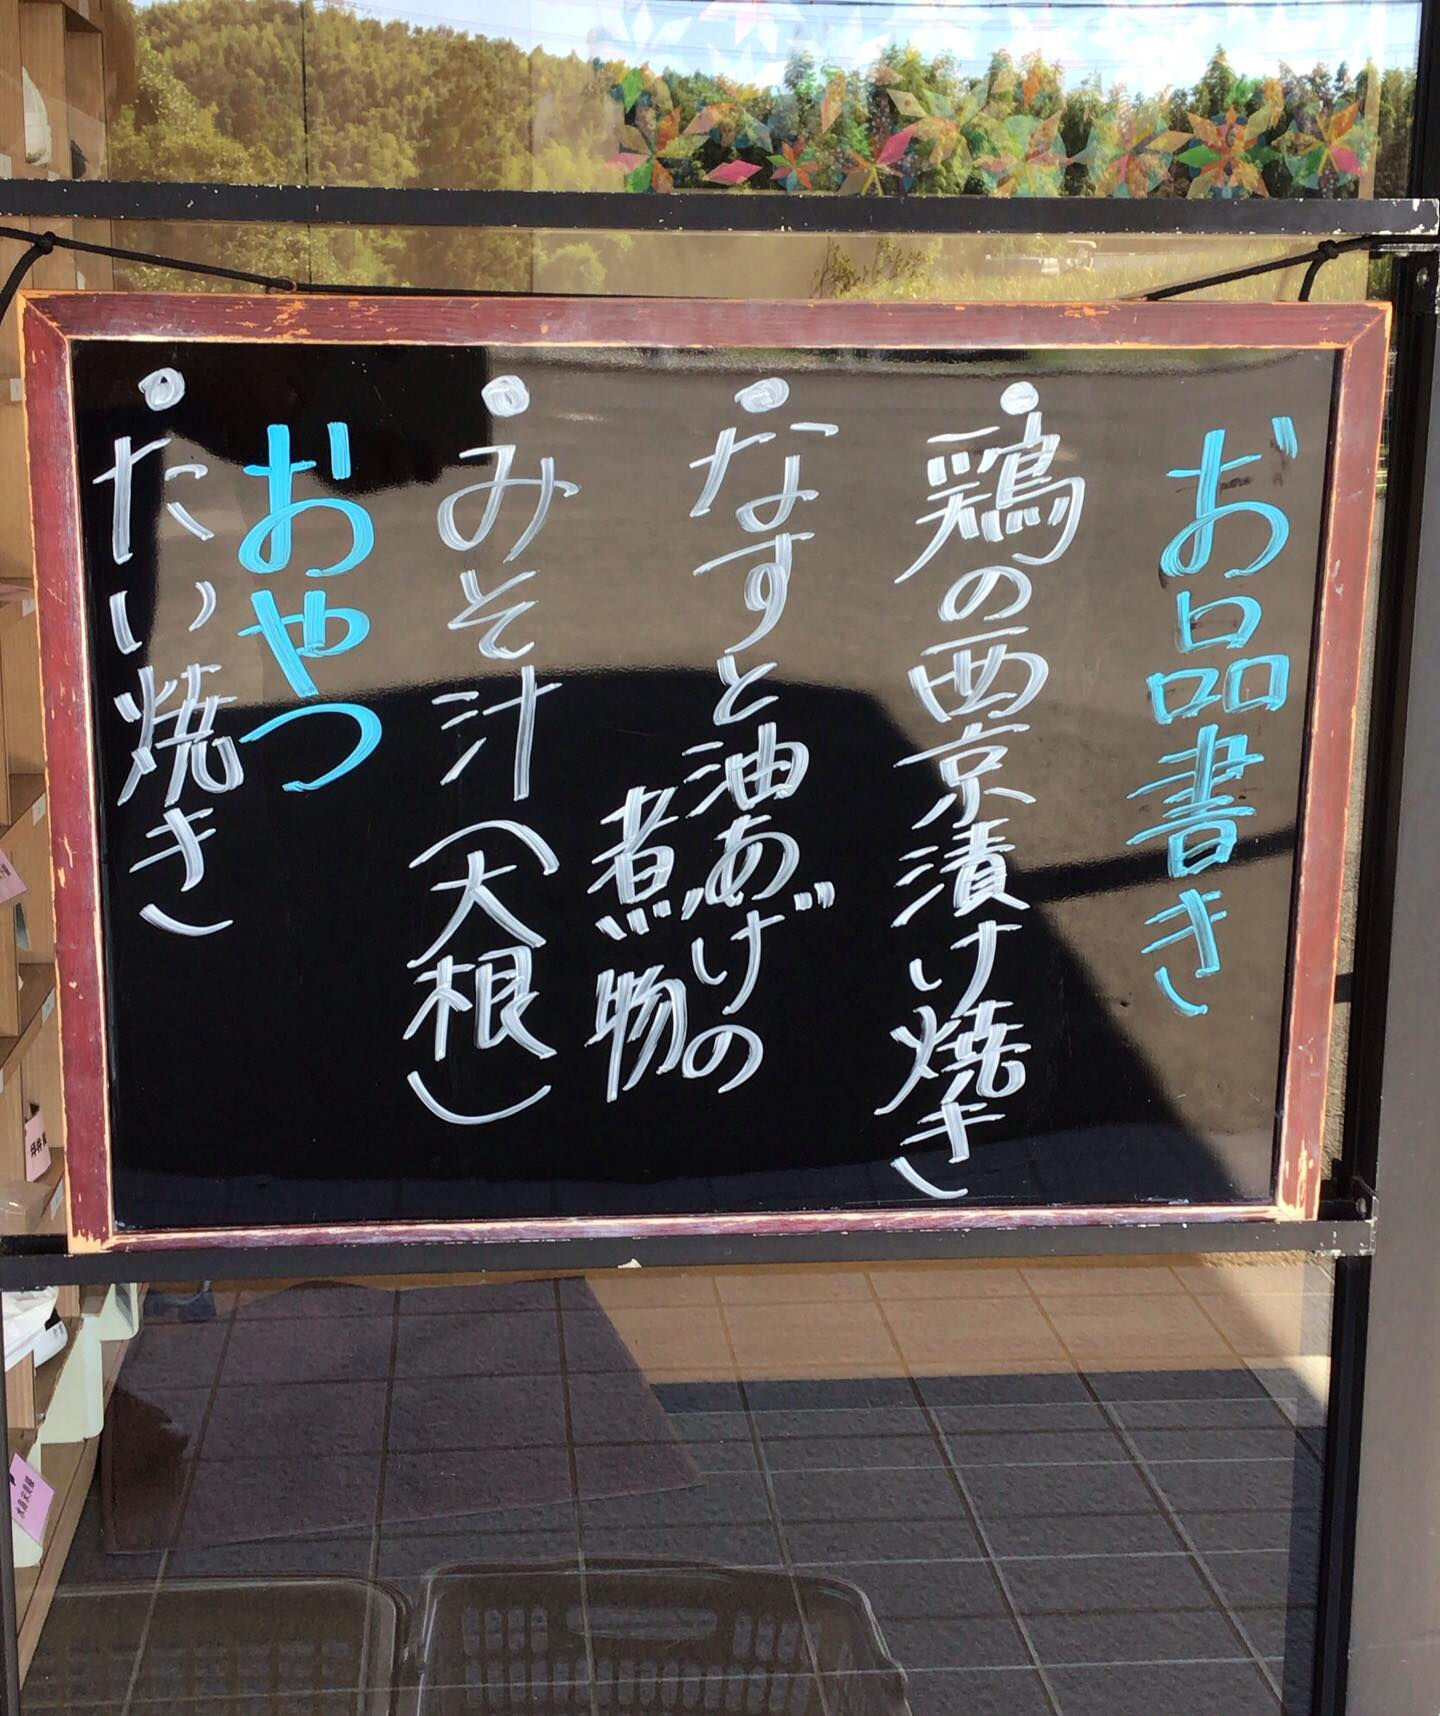 お品書き
・鶏の西京漬け焼き
・なすと油あげの
煮物
・みそ汁(大根)
おやつ
・たい焼き